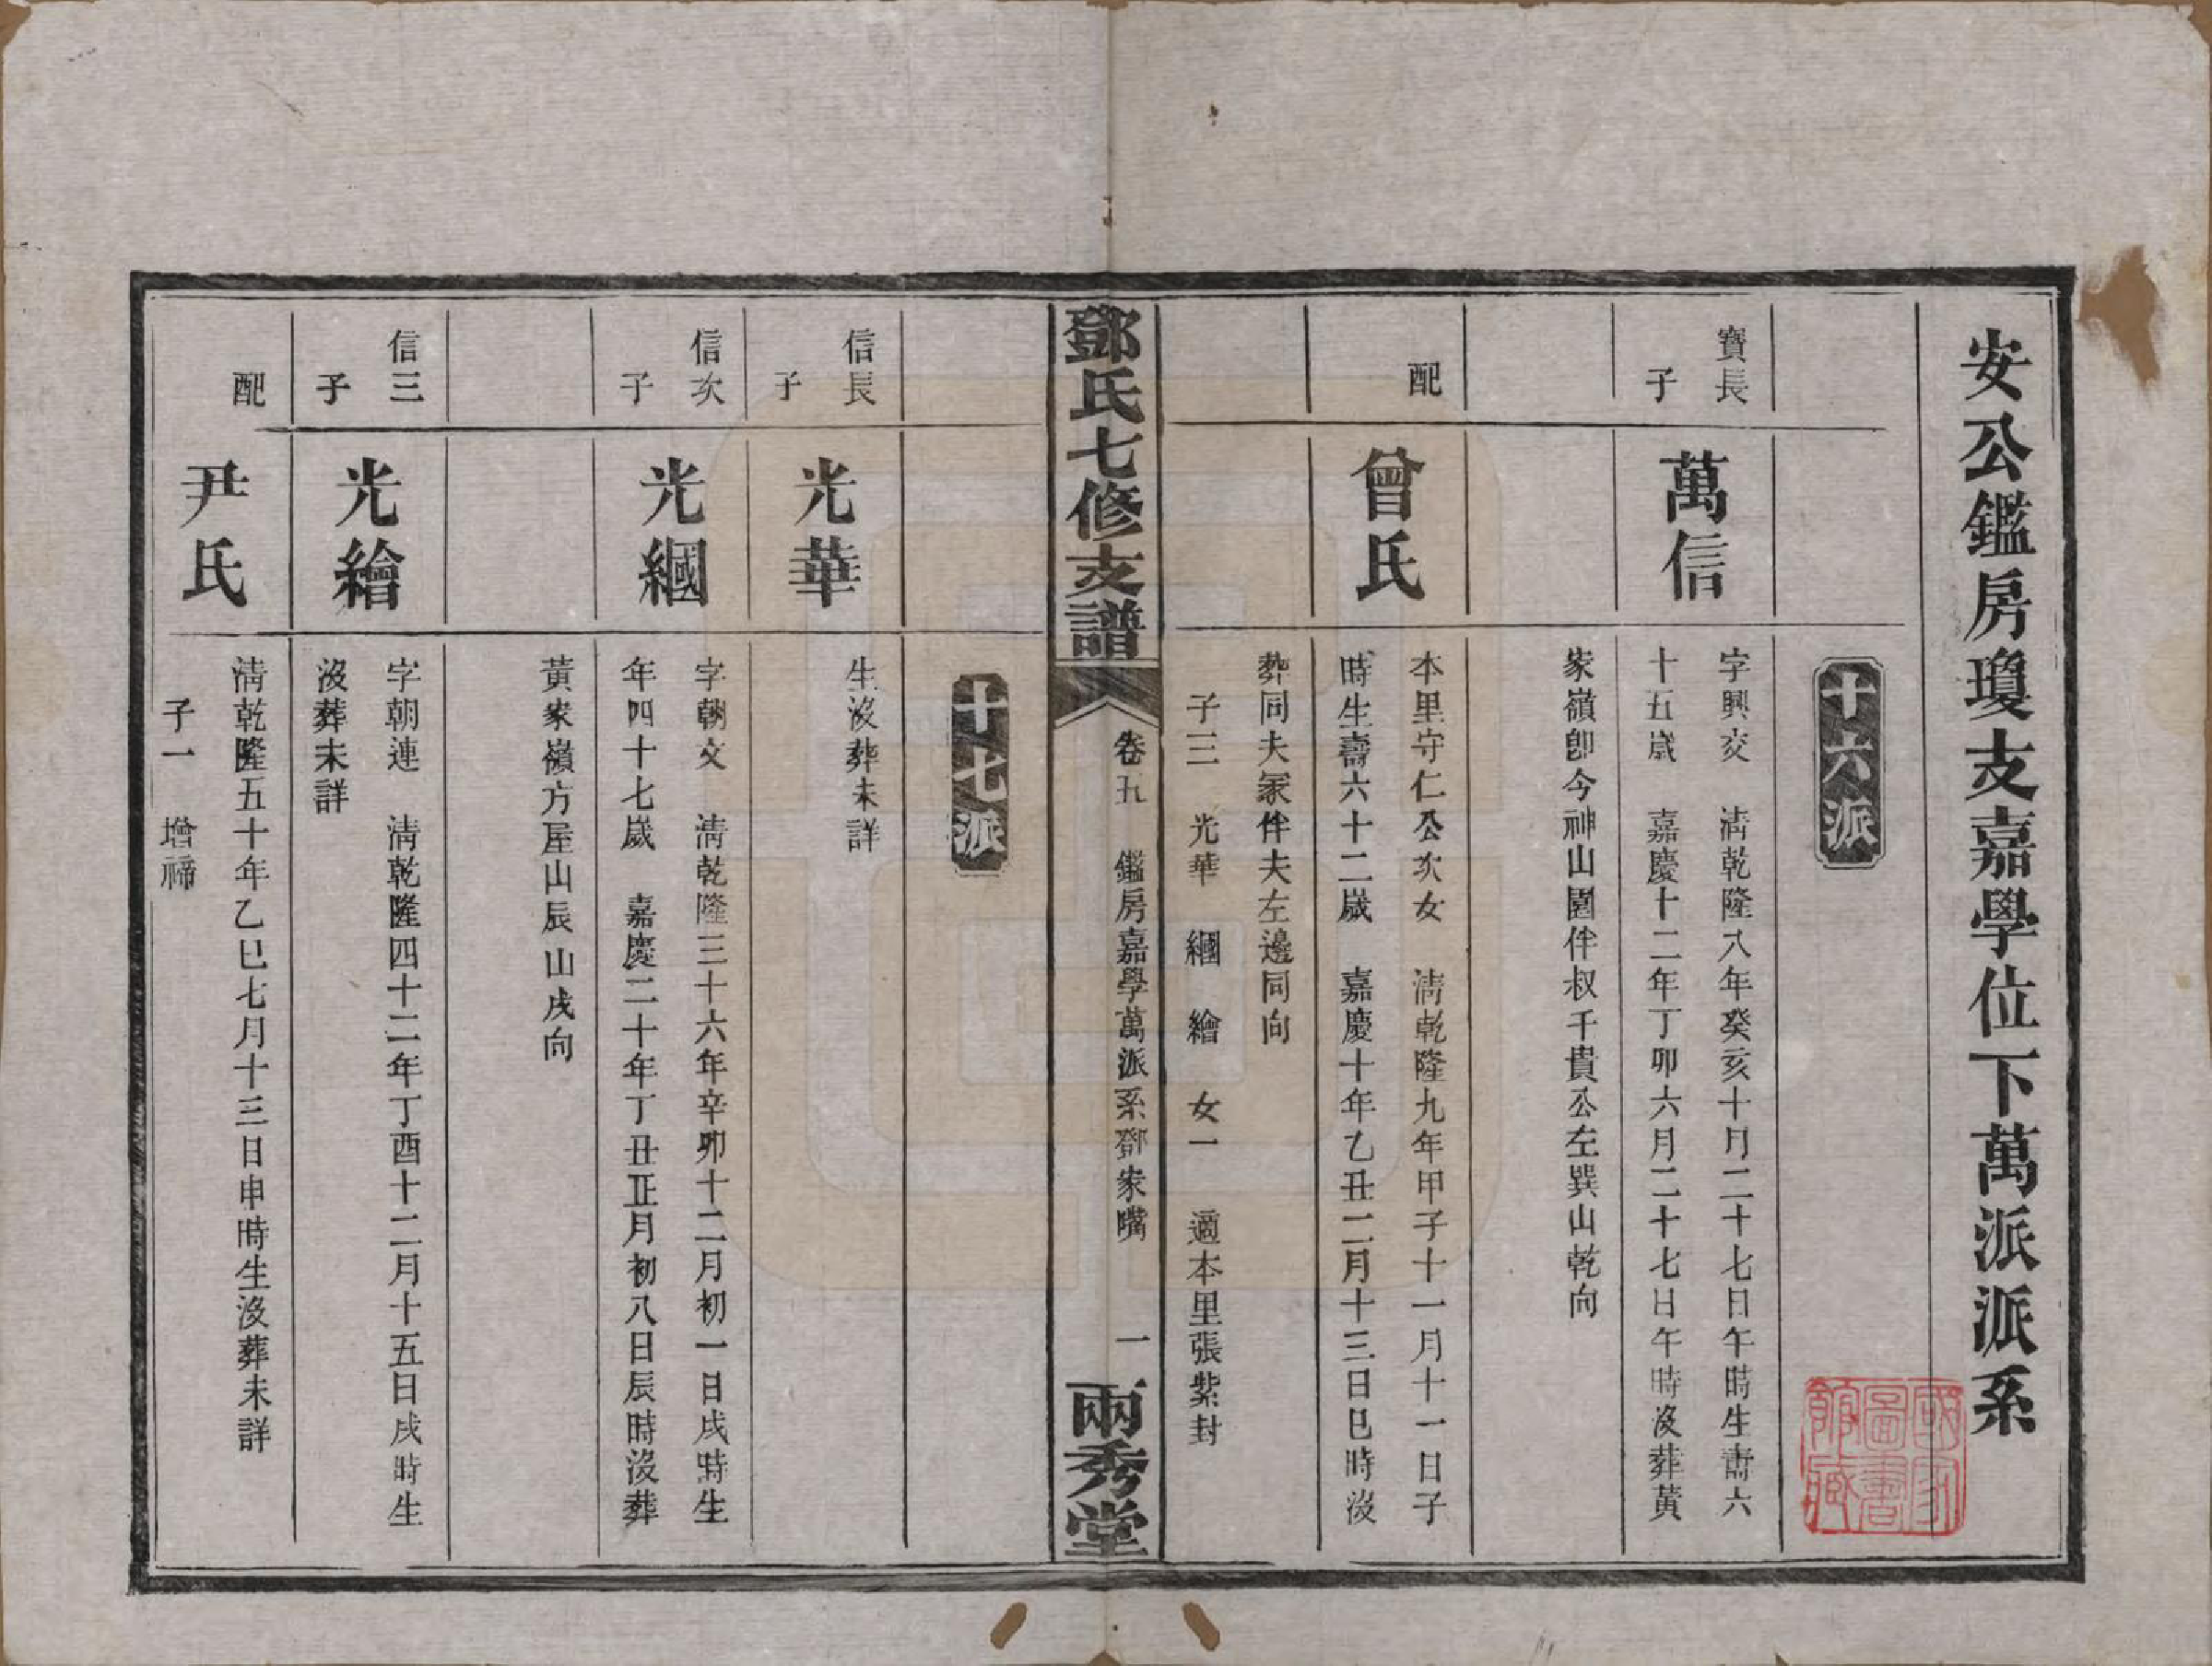 安公鑑房瓊支嘉學位下萬派派系
十六派
寶長
子
萬信
字興交　清乾隆八年癸亥十月二十七日午時生壽六
十五歲　嘉慶十二年丁卯六月二十七日午時沒葬黃
家嶺卽今神山園伴叔千貴公左巽山乾向
配
曾氏
本里守仁公次女　清乾隆九年甲子十一月十一日子
時生壽六十二歲　嘉慶十年乙丑二月十三日巳時沒
葬同夫冢伴夫左邊同向
子三　光華　繝　繪　女一　適本里張紫封
鄧氏七修支譜
卷五　鑑房嘉學萬派系鄧家嘴
一
兩秀堂
十七派
信長
子
光華
生沒葬未詳
信次
子
光繝
字朝文　清乾隆三十六年辛卯十二月初一日戌時生
年四十七歲　嘉慶二十年丁丑正月初八日辰時沒葬
黃家嶺方屋山辰山戌向
信三
子
光繪
字朝連　清乾隆四十二年丁酉十二月十五日戌時生
沒葬未詳
配
尹氏
清乾隆五十年乙巳七月十三日申時生沒葬未詳
子一　增禘
國家
圖書
館藏